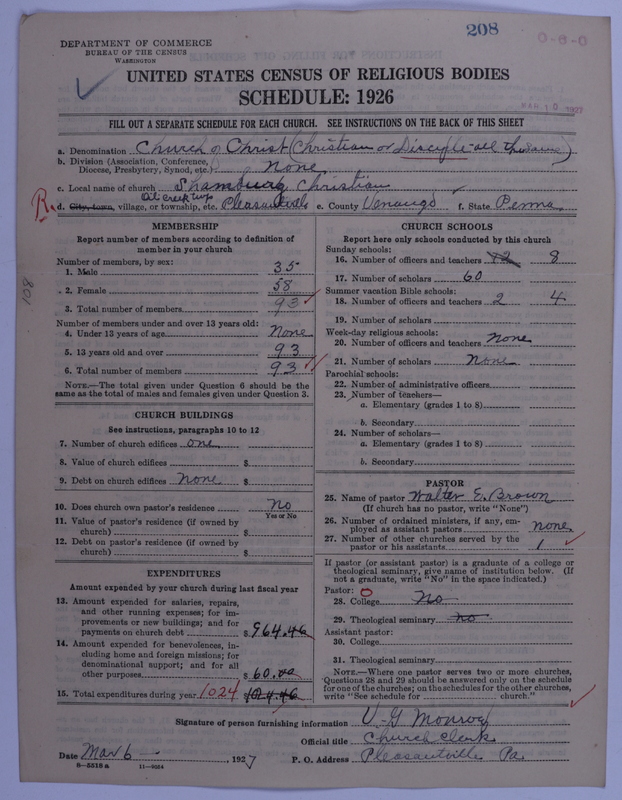 208
0-8-0
DEPARTMENT OF COMMERCE
BUREAU OF THE CENSUS
WASHINGTON
UNITED STATES CENSUS OF RELIGIOUS BODIES
SCHEDULE: 1926
MAR 10 1927
FILL OUT A SEPARATE SCHEDULE FOR EACH CHURCH. SEE INSTRUCTIONS ON THE BACK OF THIS SHEET
a. Denomination Church of Christ (Christian or Disciple all the same)
b. Division (Association, Conference, Diocese, Presbytery, Synod, etc.) None
c. Local name of church Shamburg Christian
Oil Creek twp
R d. City, town, village, or township, etc. Pleasantville e. County Venango f. State Penna
MEMBERSHIP
Report number of members according to definition of member in your church
Number of members, by sex:
1. Male 35
2. Female 58
3. Total number of members 93
Number of members under and over 13 years old:
4. Under 13 years of age None
5. 13 years old and over 93
6. Total number of members 93
NOTE.—The total given under Question 6 should be the same as the total of males and females given under Question 3.
108
CHURCH BUILDINGS
See instructions, paragraphs 10 to 12
7. Number of church edifices one
8. Value of church edifices $
9. Debt on church edifices None $
10. Does church own pastor's residence No
Yes or No
11. Value of pastor's residence (if owned by church) $
12. Debt on pastor's residence (if owned by church) $
EXPENDITURES
Amount expended by your church during last fiscal year
13. Amount expended for salaries, repairs, and other running expenses; for improvements or new buildings; and for payments on church debt $964.46
14. Amount expended for benevolences, including home and foreign missions; for denominational support; and for all other purposes $60.00
15. Total expenditures during year 1024 1024.46
CHURCH SCHOOLS
Report here only schools conducted by this church
Sunday schools:
16. Number of officers and teachers 12 8
17. Number of scholars 60
Summer vacation Bible schools:
18. Number of officers and teachers 2 4
19. Number of scholars
Week-day religious schools:
20. Number of officers and teachers none
21. Number of scholars None
Parochial schools:
22. Number of administrative officers
23. Number of teachers—
a. Elementary (grades 1 to 8)
b. Secondary
24. Number of scholars—
a. Elementary (grades 1 to 8)
b. Secondary
PASTOR
25. Name of pastor Walter E. Brown
(If church has no pastor, write "None")
26. Number of ordained ministers, if any, employed as assistant pastors none
27. Number of other churches served by the pastor or his assistants 1
If pastor (or assistant pastor) is a graduate of a college or theological seminary, give name of institution below. (If not a graduate, write "No" in the space indicated.)
Pastor: 0
28. College No
29. Theological seminary No
Assistant pastor:
30. College
31. Theological seminary
NOTE.—Where one pastor serves two or more churches, Questions 28 and 29 should be answered only on the schedule for one of the churches; on the schedules for the other churches, write "See schedule for church."
Signature of person furnishing information V. G Monroe
Official title Church Clerk
Date Mar 6, 1927 P. O. Address Pleasantville Pa.
8-5518 a 11-9554